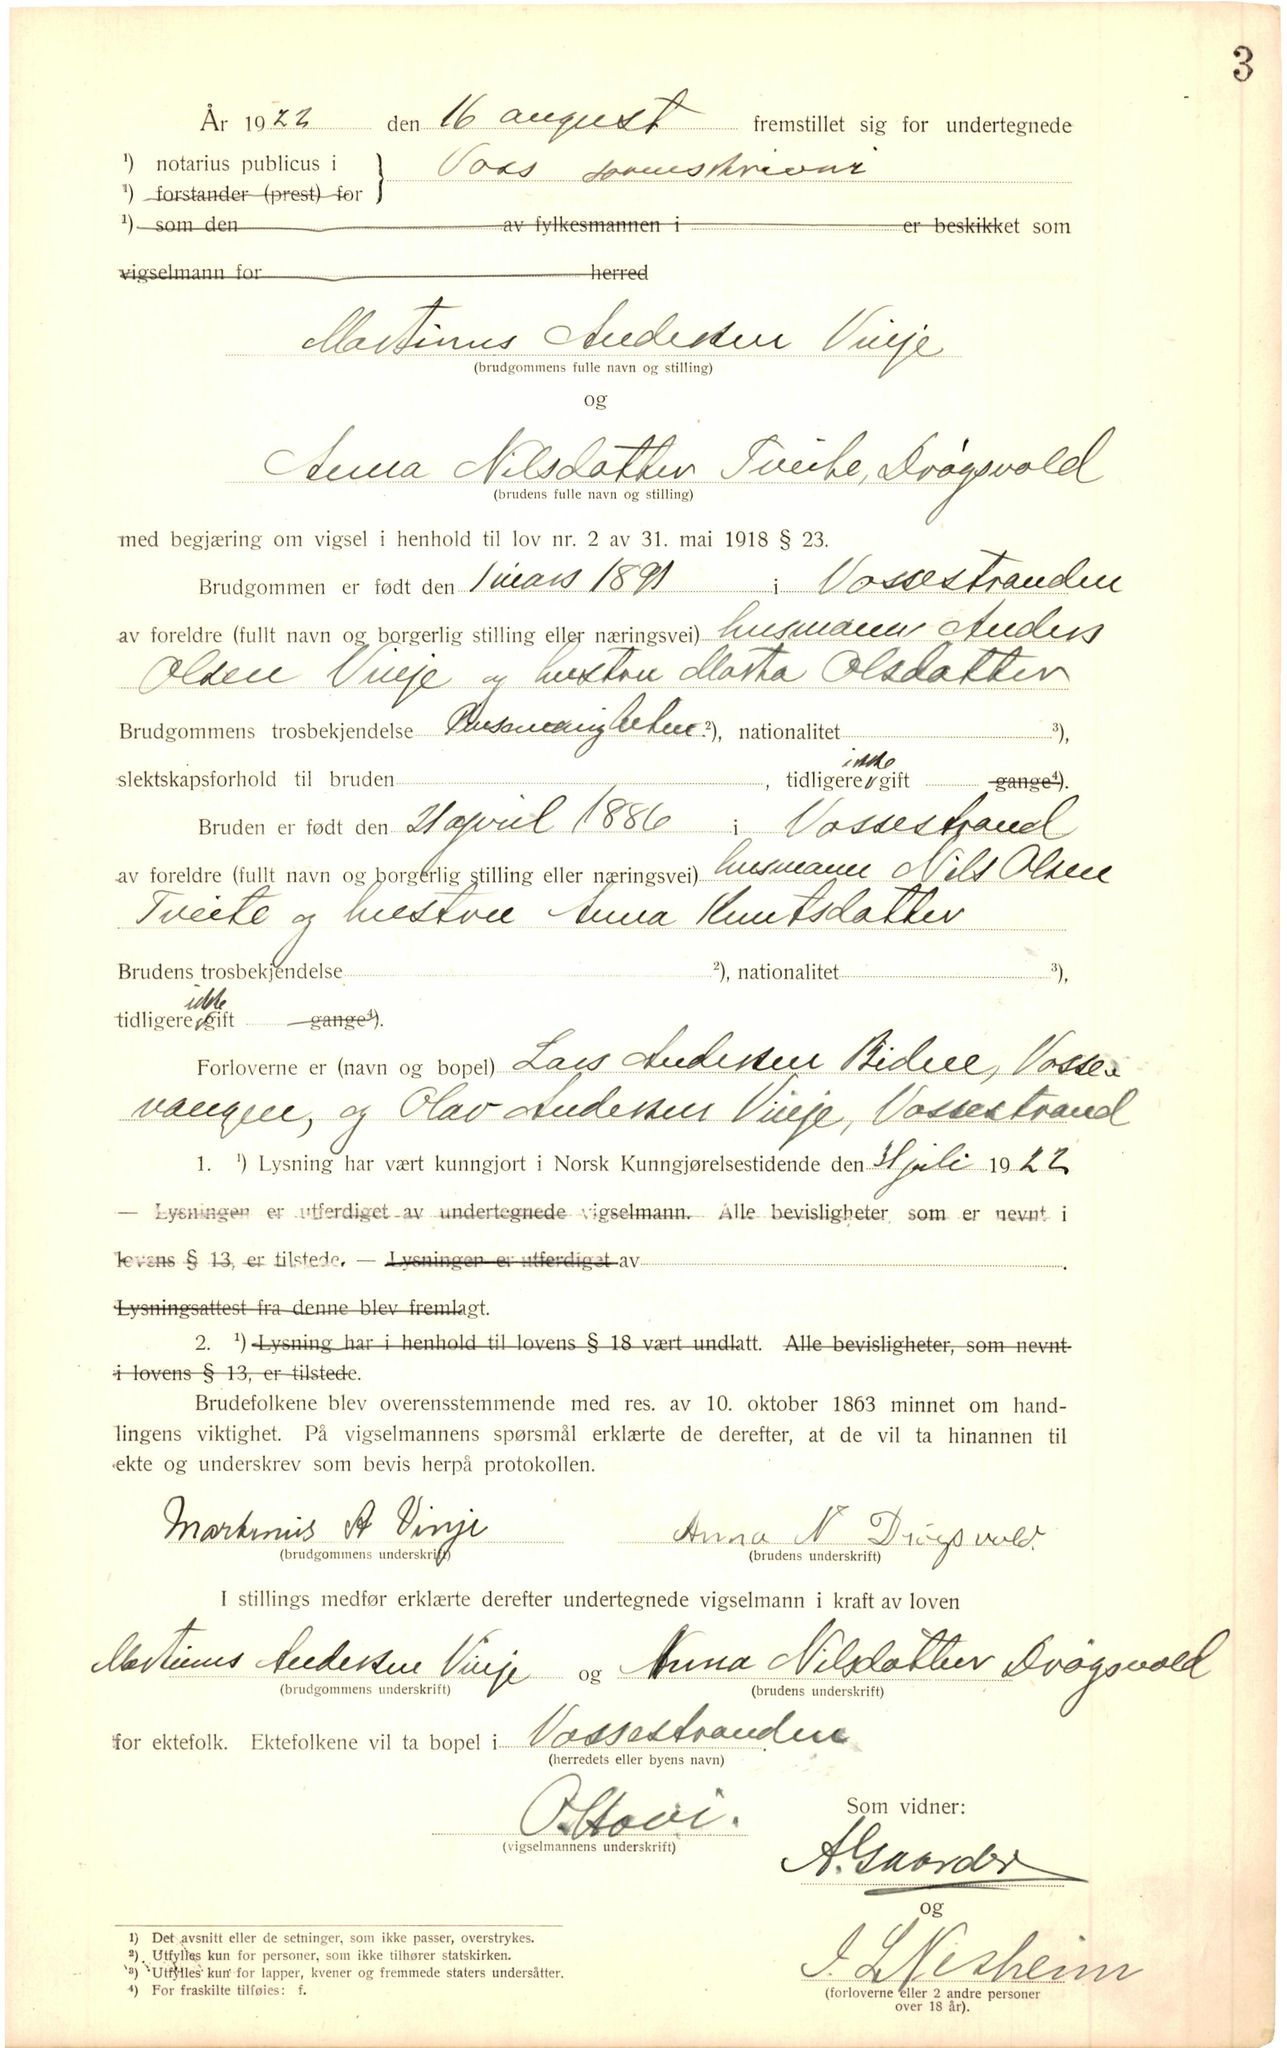 3
År 1922 den 16 august fremstillet sig for undertegnede
1) notarius publicus i } Voss sorenskriveri
1) forstander (prest) for
1) som den av fylkesmannen i er beskikket som
vigselmann for herred
Martinus Andersen Vinje
(brudgommens fulle navn og stilling)
og
Anna Nilsdatter Tveite, Drøgsvold
(brudens fulle navn og stilling)
med begjæring om vigsel i henhold til lov nr. 2 av 31. mai 1918 § 23.
Brudgommen er født den 1 mars 1891 i Vossestranden
av foreldre (fullt navn og borgerlig stilling eller næringsvei) husmann Anders
Olsen Vinje og hustru Marta Olsdatter
Brudgommens trosbekjendelse 2), nationalitet 3),
slektskapsforhold til bruden , tidligere ikke gift gange4).
Bruden er født den 21 april 1886 i Vossestrand
av foreldre (fullt navn og borgerlig stilling eller næringsvei) husmann Nils Olsen
Tveite og hustru Anna Knutsdatter
Brudens trosbekjendelse 2), nationalitet 3),
tidligere ikke gift gange4).
Forloverne er (navn og bopel) Lars Andersen Bidne, Vosse-
vangen, og Olav Andersen Vinje, Vossestrand
1. 1) Lysning har vært kunngjort i Norsk Kunngjørelsestidende den 31 juli 1922
— Lysningen er utferdiget av undertegnede vigselmann. Alle bevisligheter som er nevnt i
lovens § 13, er tilstede. — Lysningen er utferdiget av .
Lysningsattest fra denne blev fremlagt.
2. 1) Lysning har i henhold til lovens § 18 vært undlatt. Alle bevisligheter, som nevnt
i lovens § 13, er tilstede.
Brudefolkene blev overensstemmende med res. av 10. oktober 1863 minnet om hand-
lingens viktighet. På vigselmannens spørsmål erklærte de derefter, at de vil ta hinannen til
ekte og underskrev som bevis herpå protokollen.
Martinus A Vinje Anna N Drøgsvold.
(brudgommens underskrift) (brudens underskrift)
I stillings medfør erklærte derefter undertegnede vigselmann i kraft av loven
Martinus Andersen Vinje og Anna Nilsdatter Drøgsvold
(brudgommens underskrift) (brudens underskrift)
for ektefolk. Ektefolkene vil ta bopel i Vossestranden
(herredets eller byens navn)
Som vidner:
(vigselmannens underskrift)
A. Gaarder
og
J. L Nesheim
(forloverne eller 2 andre personer
over 18 år).
1) Det avsnitt eller de setninger, som ikke passer, overstrykes.
2) Utfylles kun for personer, som ikke tilhører statskirken.
3) Utfylles kun for lapper, kvener og fremmede staters undersåtter.
4) For fraskilte tilføies: f.